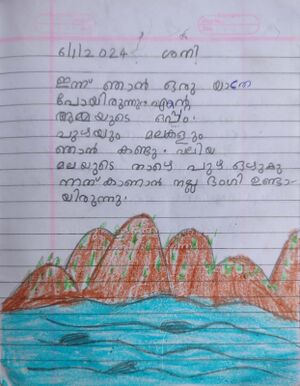 6/1/2024 ശനി
ഇന്ന് ഞാൻ ഒരു യാത്ര
പോയിരുന്നു. എന്റെ
അമ്മയുടെ ഒപ്പം.
പുഴയും മലകളും
ഞാൻ കണ്ടു. വലിയ
മലയുടെ താഴെ പുഴ ഒഴുകു
ന്നത് കാണാൻ നല്ല ഭംഗി ഉണ്ടാ
യിരുന്നു.